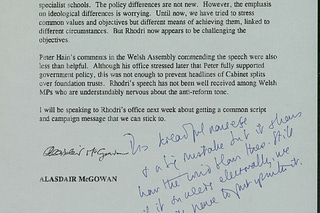 specialist schools. The policy differences are not new. However, the emphasis
on ideological differences is worrying. Until now, we have tried to stress
common values and objectives but different means of achieving them, linked to
different circumstances. But Rhodri now appears to be challenging the
objectives.
Peter Hain's comments in the Welsh Assembly commending the speech were also
less than helpful. Although his office stressed later that Peter fully supported
government policy, this was not enough to prevent headlines of Cabinet splits
over foundation trusts. Rhodri's speech has not been well received among Welsh
MPs who are understandably nervous about the anti-reform tone.
I will be speaking to Rhodri's office next week about getting a common script
and campaign message that we can stick to.
Alasdair McGowan
ALASDAIR McGOWAN
This is
& a big mistake but it shows
how the
it
have to put